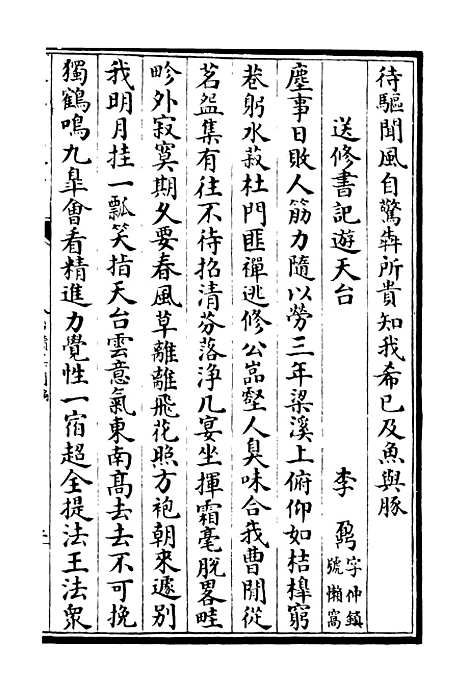 待驅聞風自驚犇所貴知我希已及魚與豚
送修書記遊天台
李 鼐字仲鎮號懶窩
塵事日敗人筋力隨以勞三年梁溪上俯仰如桔橰窮
巷躬水菽杜門匪禪逃修公嵓壑人臭味合我曹閒從
茗盌集有往不待招清芬落淨几宴坐揮霜毫脫畧畦
畛外寂寞期久要春風草離離飛花照方袍朝來遽別
我明月挂一瓢笑指天台雲意氣東南高去去不可挽
獨鶴鳴九臯會看精進力覺性一宿超全提法王法衆